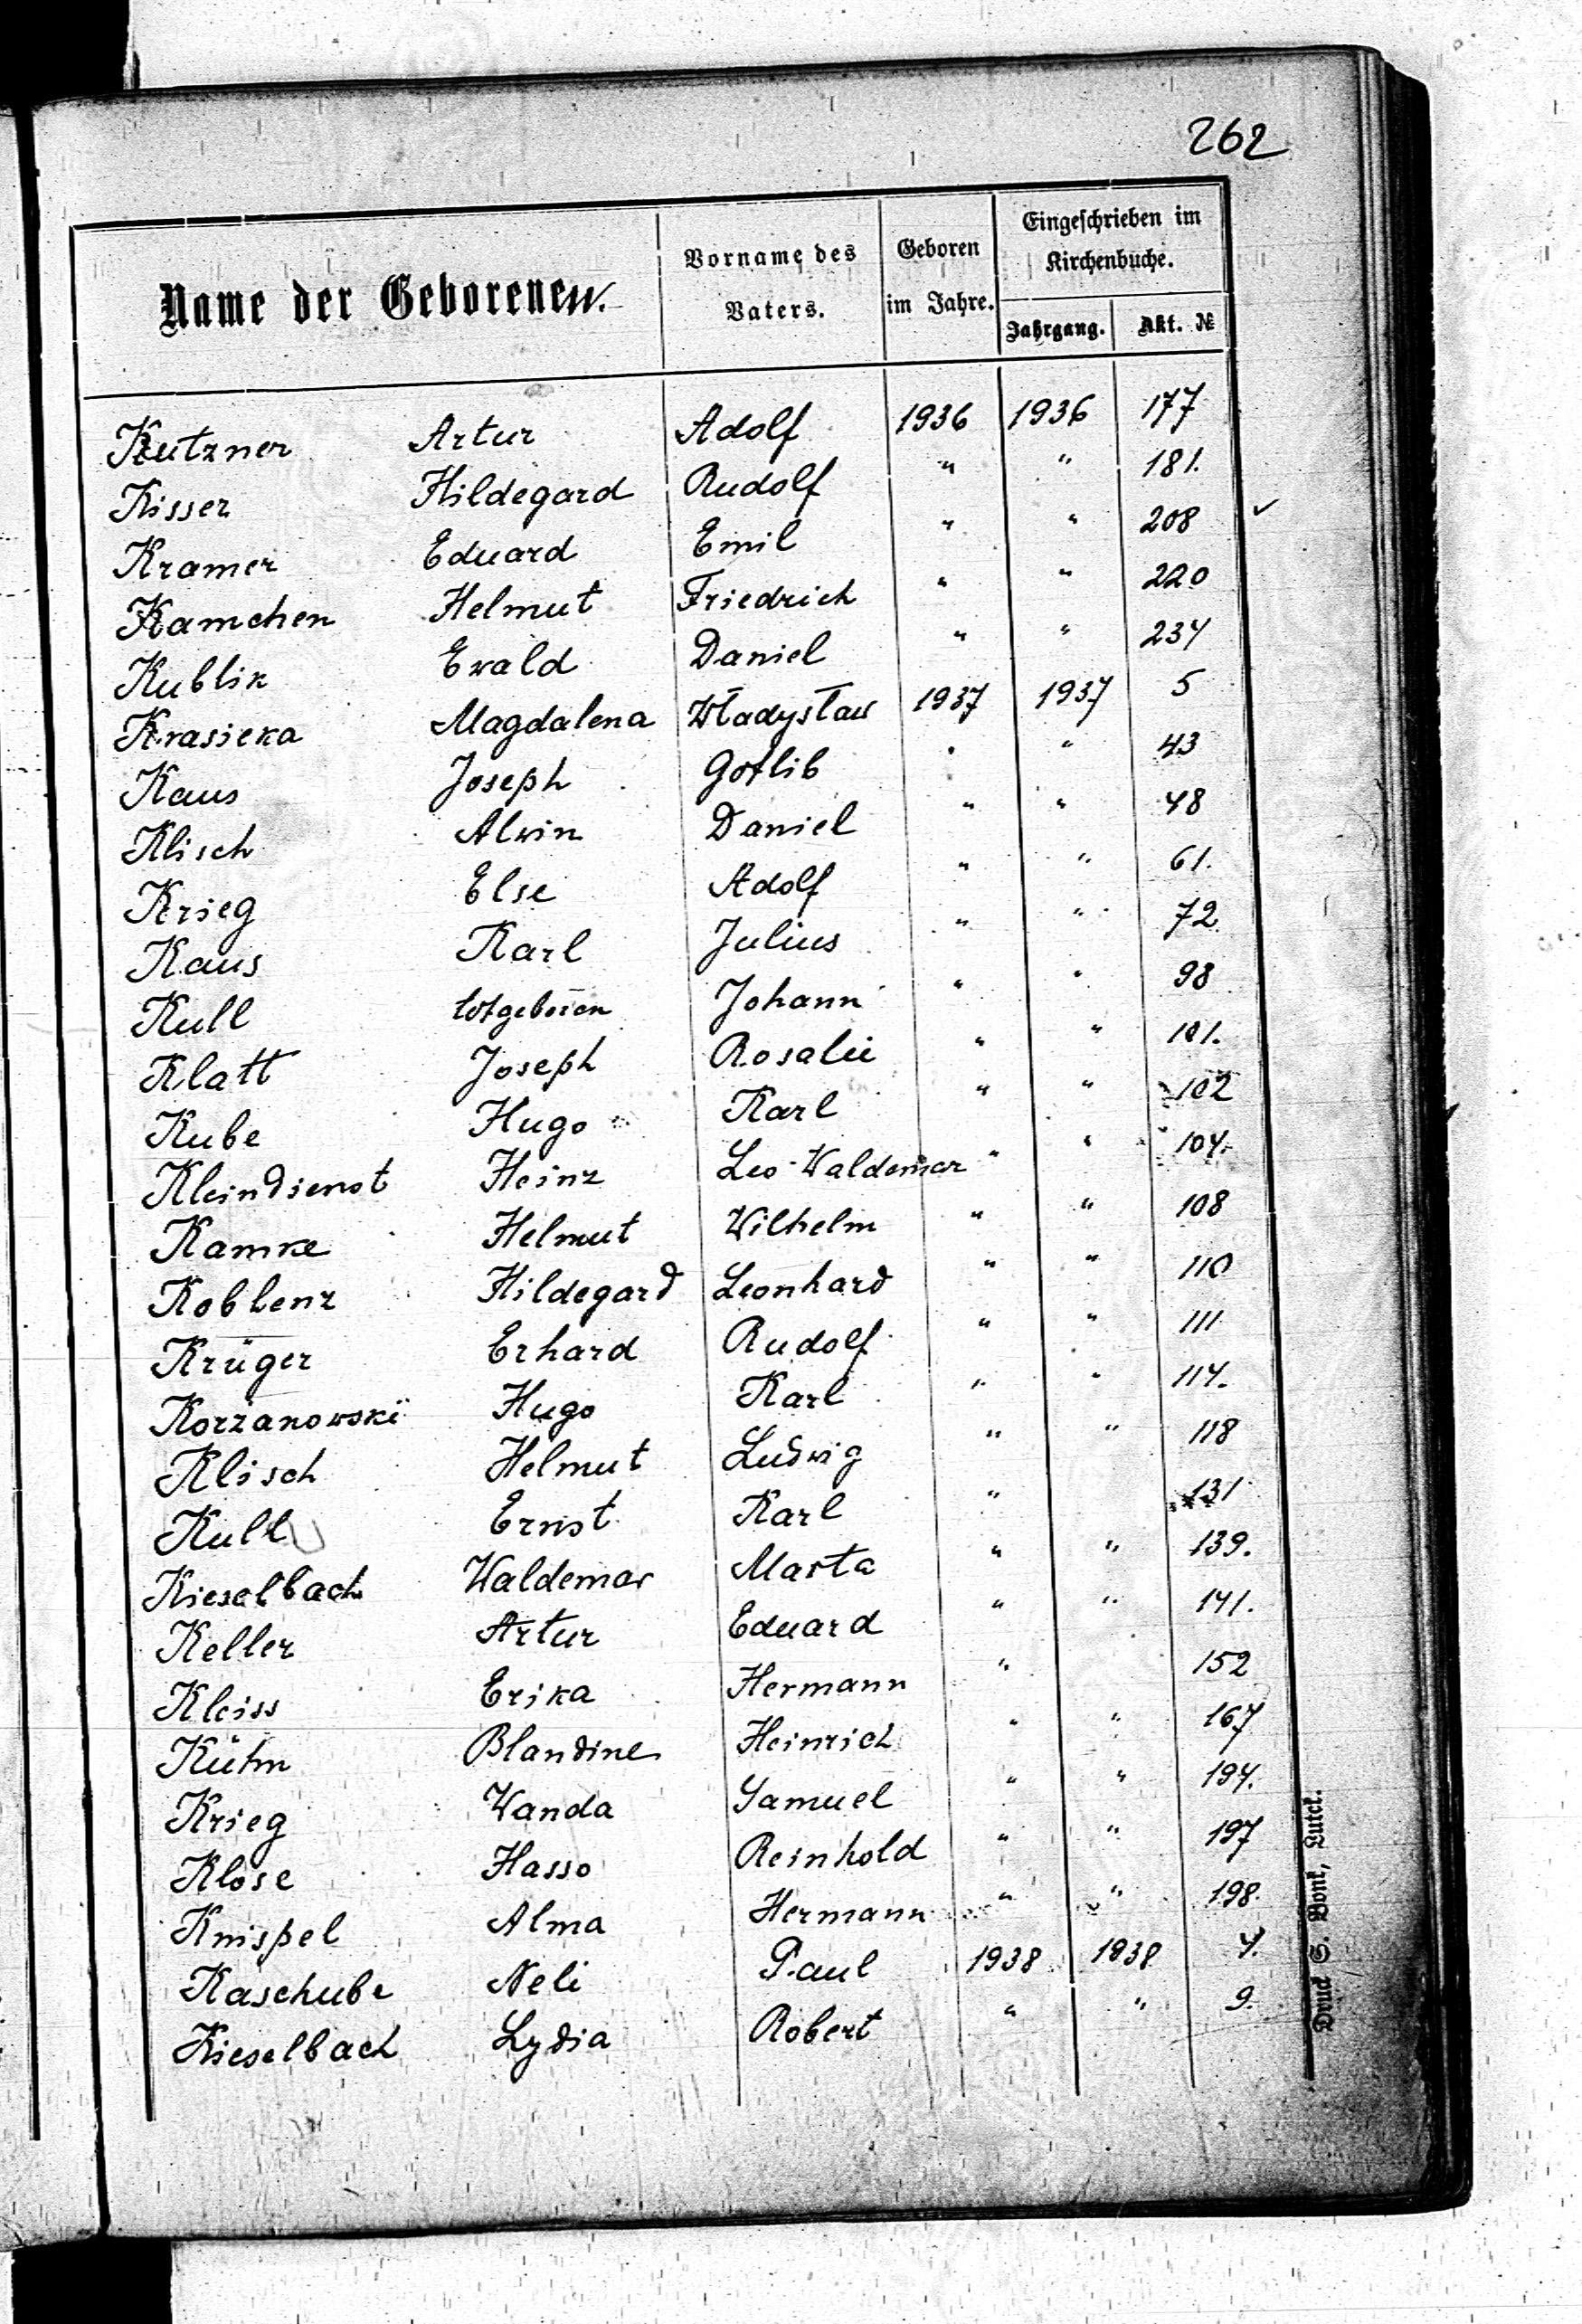 262
Name der Geborenen.
Vorname des Vaters.
Geboren im Jahre.
Eingeschrieben im Kirchenbuche.
Jahrgang. Akt. №
Kutzner Artur Adolf 1936 1936 177
Kisser Hildegard Rudolf " " 181.
Kramer Eduard Emil " " 208 ✓
Kamchen Helmut Friedrich " " 220
Kublik Ewald Daniel " " 234
Krasicka Magdalena Władysław 1937 1937 5
Kaus Joseph Gotlib " " 43
Klisch Alwin Daniel " " 48
Krieg Else Adolf " " 61.
Kaus Karl Julius " " 72
Kull totgeboren Johann " " 98
Klatt Joseph Rosalie " " 101.
Kube Hugo Karl " " 102
Kleindienst Heinz Leo-Waldemar " " 104.
Kamke Helmut Wilhelm " " 108
Koblenz Hildegard Leonhard " " 110
Krüger Erhard Rudolf " " 111
Korzanowski Hugo Karl " " 114.
Klisch Helmut Ludwig " " 118
Kull Ernst Karl " 131
Kieselbach Waldemar Marta " " 139.
Keller Artur Eduard " " 141.
Kleiss Erika Hermann " 152
Kühn Blandine Heinrich " " 167
Krieg Wanda Samuel " " 194.
Klose Hasso Reinhold " " 197
Knispel Alma Hermann " " 198.
Kaschube Neli Paul 1938 1938 4.
Kieselbach Lydia Robert " " 9.
Druck S. Bonk, Lutck.